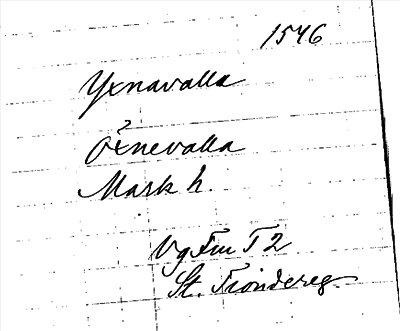 1546
Yxnavalla
Öxnevalla
Mark h.
Vg Fru T 2
St. Tiondereg.